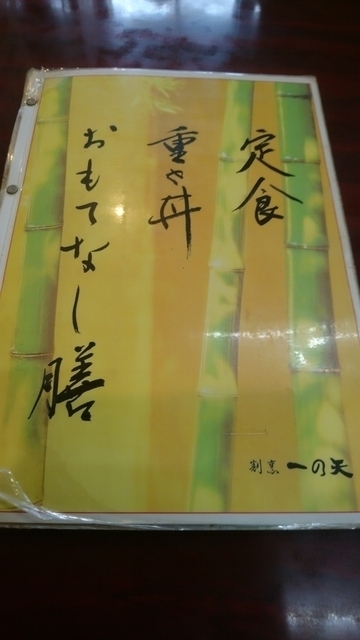 定食
重や丼
おもてなし膳
割烹 一の矢